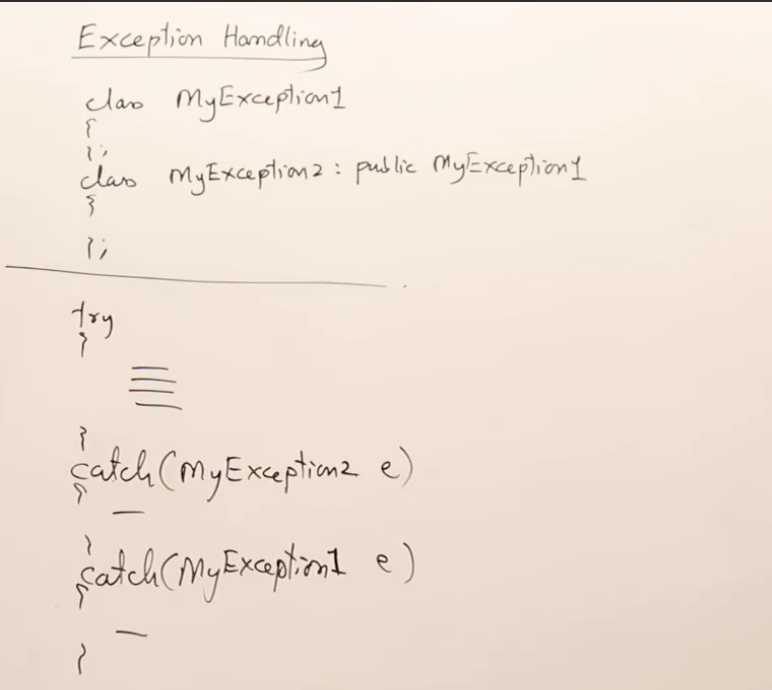 Exception Handling
class MyException1
{
};
class MyException2 : public MyException1
{
};
try
{
}
catch(MyException2 e)
{
}
catch(MyException1 e)
{
}